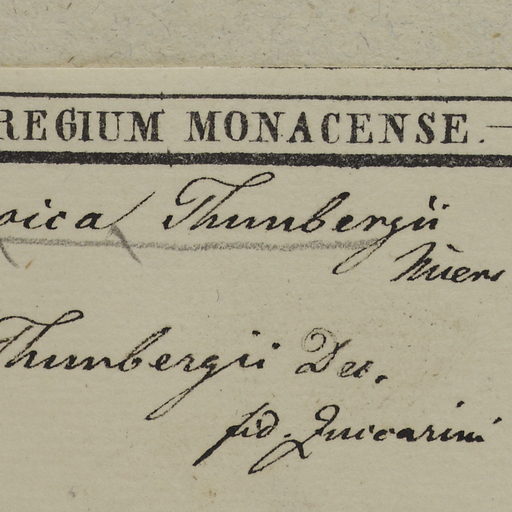 REGIUM MONACENSE.
Thunbergii
Miers
Thunbergii Dec.
fid. Zuccarini